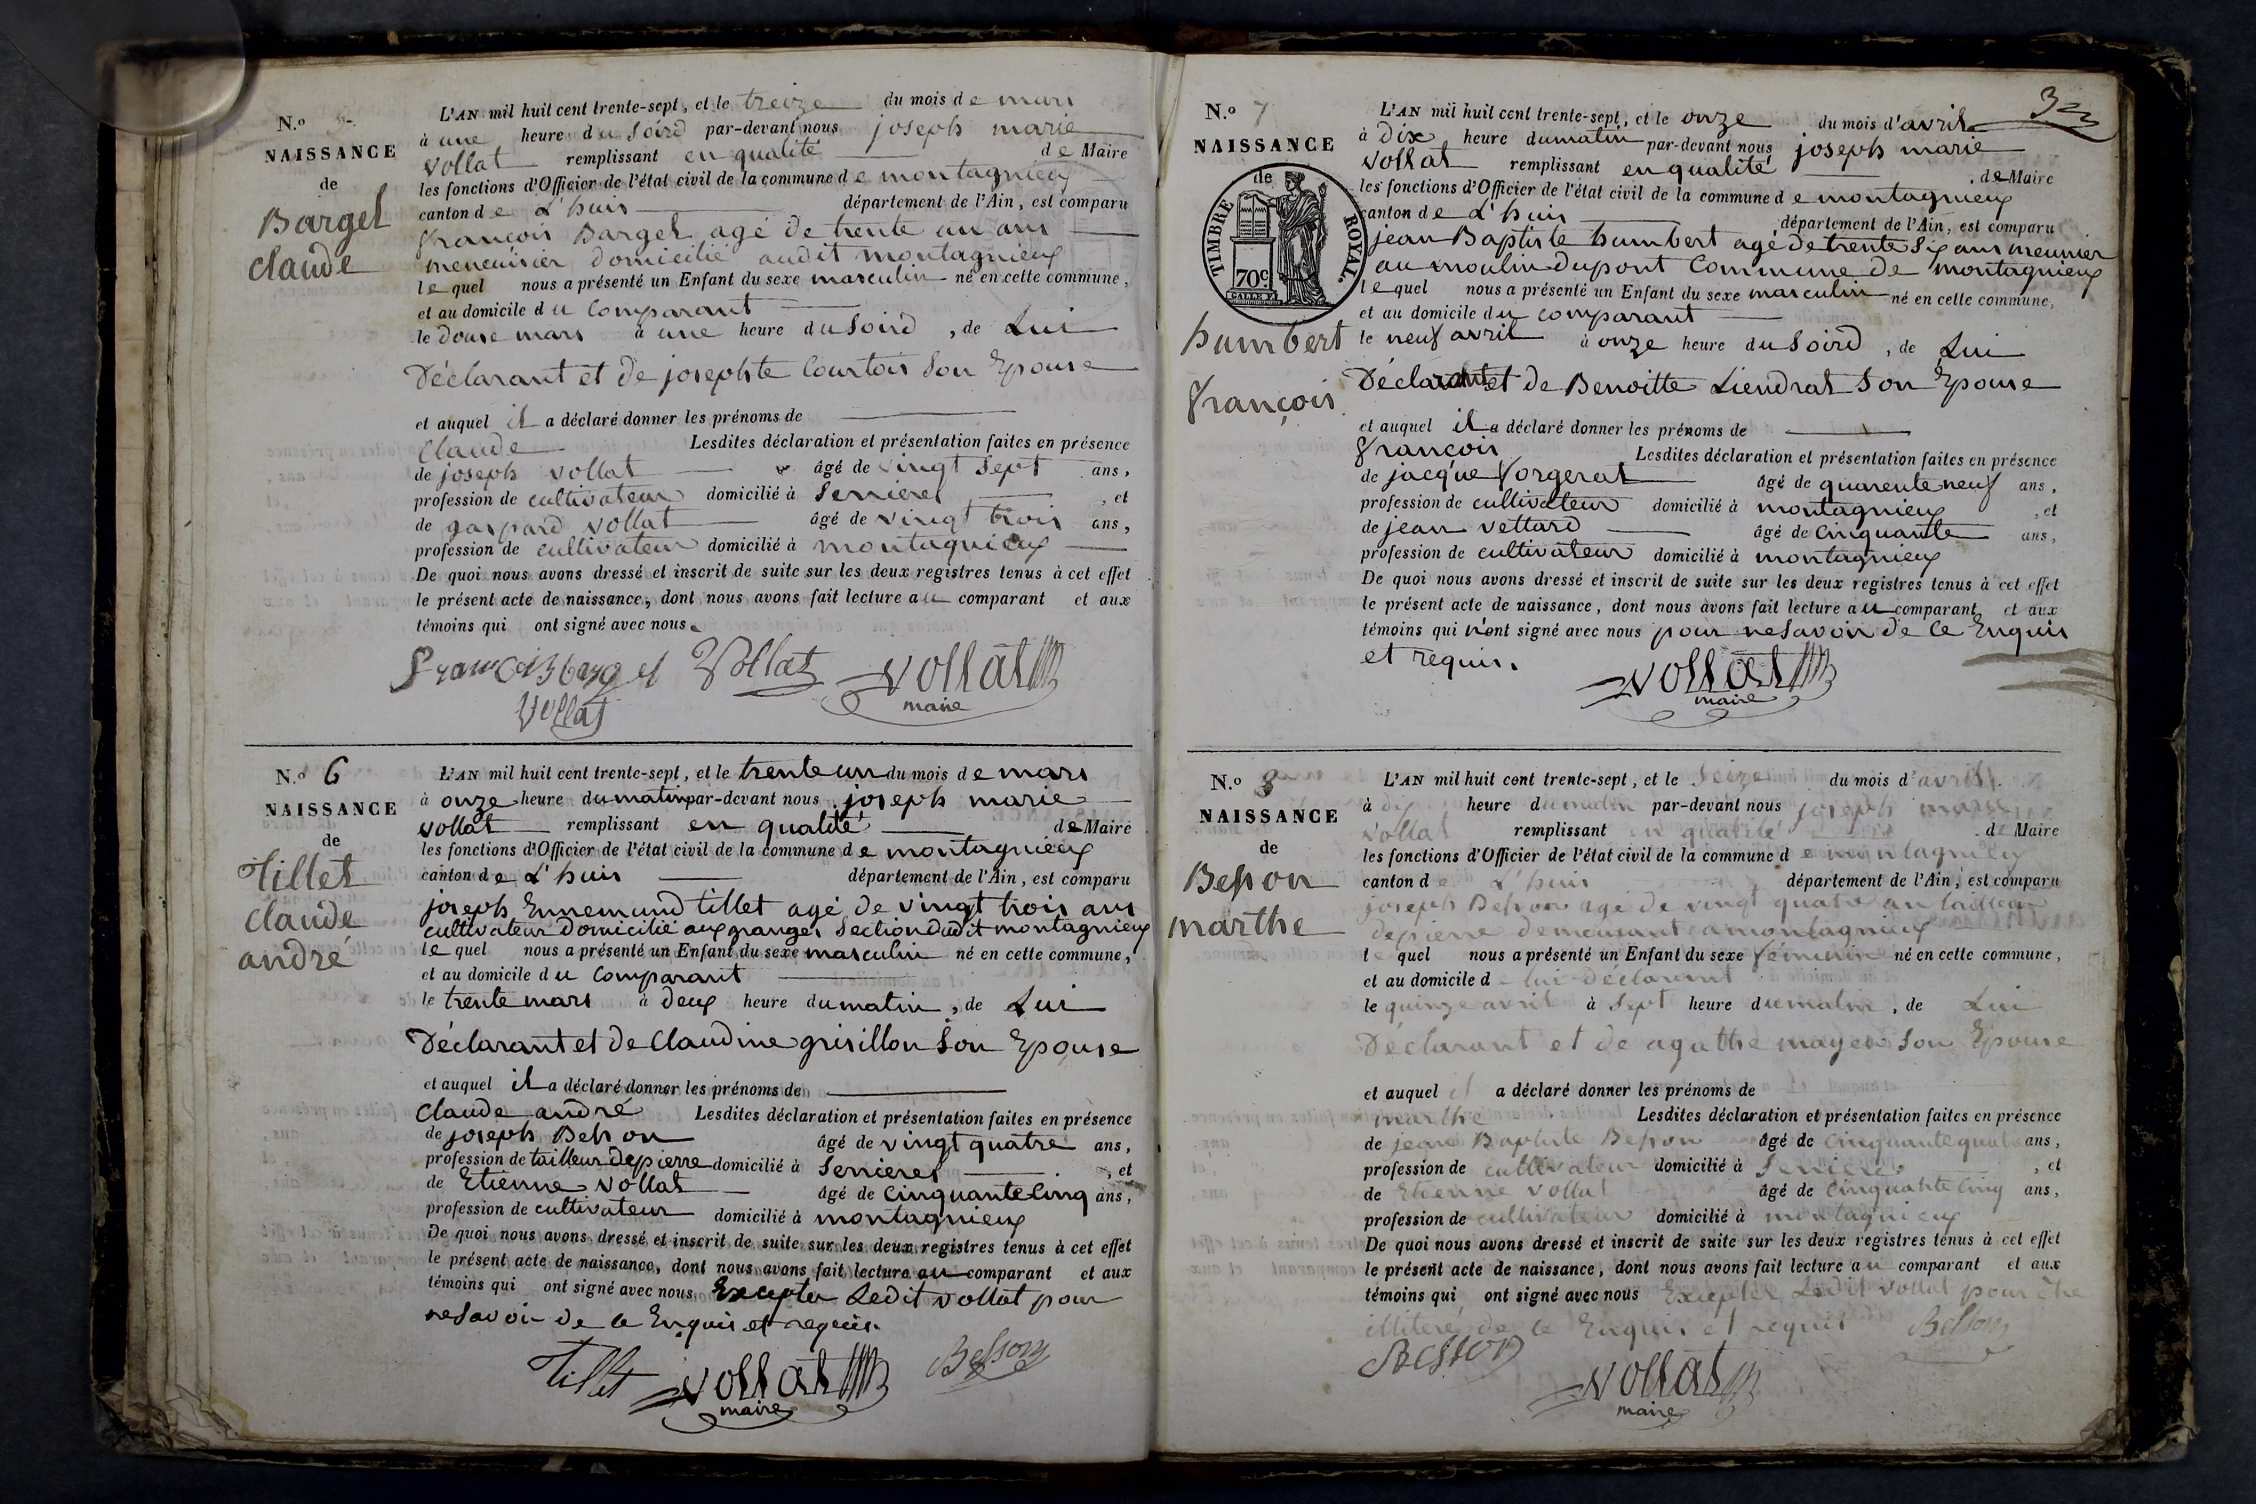 N.º 5
NAISSANCE
de
Barget
Claude
L'AN mil huit cent trente-sept, et le treize du mois de mars
à une heure du soird par-devant nous joseph marie
vollat remplissant en qualité de Maire
les fonctions d'Officier de l'état civil de la commune de montagnieux
canton de L'huis département de l'Ain, est comparu
françois Barget agé de trente un ans
menuisier domicilié audit montagnieux
lequel nous a présenté un Enfant du sexe masculin né en cette commune,
et au domicile du Comparant
le douse mars à une heure du soird, de Lui
Déclarant et de josephte Courtois Son Epouse
et auquel il a déclaré donner les prénoms de
Claude Lesdites déclaration et présentation faites en présence
de joseph vollat âgé de vingt sept ans,
profession de cultivateur domicilié à Serrieres, et
de gaspard vollat âgé de vingt trois ans,
profession de cultivateur domicilié à montagnieux
De quoi nous avons dressé et inscrit de suite sur les deux registres tenus à cet effet
le présent acte de naissance, dont nous avons fait lecture au comparant et aux
témoins qui ont signé avec nous.
francois barget Vollat vollat
Vollat maire
N.º 6
NAISSANCE
de
Tillet
Claude
andré
L'AN mil huit cent trente-sept, et le trente un du mois de mars
à onze heure du matin par-devant nous joseph marie
vollat remplissant en qualité de Maire
les fonctions d'Officier de l'état civil de la commune de montagnieux
canton de L'huis département de l'Ain, est comparu
joseph Ennemund tillet agé de vingt trois ans
cultivateur domicilié aux granges Section dudit montagnieux
lequel nous a présenté un Enfant du sexe masculin né en cette commune,
et au domicile du Comparant
le trente mars à deux heure du matin, de Lui
Déclarant et de Claudine grisillon Son Epouse
et auquel il a déclaré donner les prénoms de
Claude andré Lesdites déclaration et présentation faites en présence
de joseph Besson âgé de vingt quatre ans,
profession de tailleur de pierre domicilié à Serrieres, et
de Etienne vollat âgé de Cinquante Cinq ans,
profession de cultivateur domicilié à montagnieux
De quoi nous avons dressé et inscrit de suite sur les deux registres tenus à cet effet
le présent acte de naissance, dont nous avons fait lecture au comparant et aux
témoins qui ont signé avec nous Excepter Ledit vollat pour
ne Savoir de ce Enquis et requis.
Tillet vollat Besson
maire
32
N.º 7
NAISSANCE
de
TIMBRE ROYAL.
70c
humbert
françois
L'AN mil huit cent trente-sept, et le onze du mois d'avril
à Dix heure du matin par-devant nous joseph marie
vollat remplissant en qualité de Maire
les fonctions d'Officier de l'état civil de la commune de montagnieux
canton de L'huis département de l'Ain, est comparu
jean Baptiste humbert agé de trente Six ans meunier
au moulin Dupont Commune de montagnieux
lequel nous a présenté un Enfant du sexe masculin né en cette commune,
et au domicile du comparant
le neuf avril à onze heure du Soird, de Lui
Déclarant et de Benoitte Liendrat Son Epouse
et auquel il a déclaré donner les prénoms de
françois Lesdites déclaration et présentation faites en présence
de jacque Vorgerat âgé de quarente neuf ans,
profession de cultivateur domicilié à montagnieux, et
de jean vettard âgé de Cinquante ans,
profession de cultivateur domicilié à montagnieux
De quoi nous avons dressé et inscrit de suite sur les deux registres tenus à cet effet
le présent acte de naissance, dont nous avons fait lecture au comparant et aux
témoins qui n'ont signé avec nous pour ne Savoir de Ce Enquis
et requis.
vollat
maire
N.º 8
NAISSANCE
de
Besson
marthe
L'AN mil huit cent trente-sept, et le Seize du mois d'avril
à dix heure du matin par-devant nous joseph marie
vollat remplissant en qualité de Maire
les fonctions d'Officier de l'état civil de la commune de montagnieux
canton de L'huis département de l'Ain, est comparu
joseph Besson agé de vingt quatre an tailleur
de pierre demeurant a montagnieux
lequel nous a présenté un Enfant du sexe féminin né en cette commune,
et au domicile de lui déclarant
le quinze avril à Sept heure du matin, de Lui
Déclarant et de agathe mayer Son Epouse
et auquel il a déclaré donner les prénoms de
marthe Lesdites déclaration et présentation faites en présence
de jean Baptiste Besson âgé de Cinquante quatre ans,
profession de cultivateur domicilié à Serrieres, et
de Etienne vollat âgé de Cinquante Cinq ans,
profession de cultivateur domicilié à montagnieux
De quoi nous avons dressé et inscrit de suite sur les deux registres tenus à cet effet
le présent acte de naissance, dont nous avons fait lecture au comparant et aux
témoins qui ont signé avec nous Excepter Ledit vollat pour être
illiteré de ce Enquis et requis Besson
Besson vollat
maire